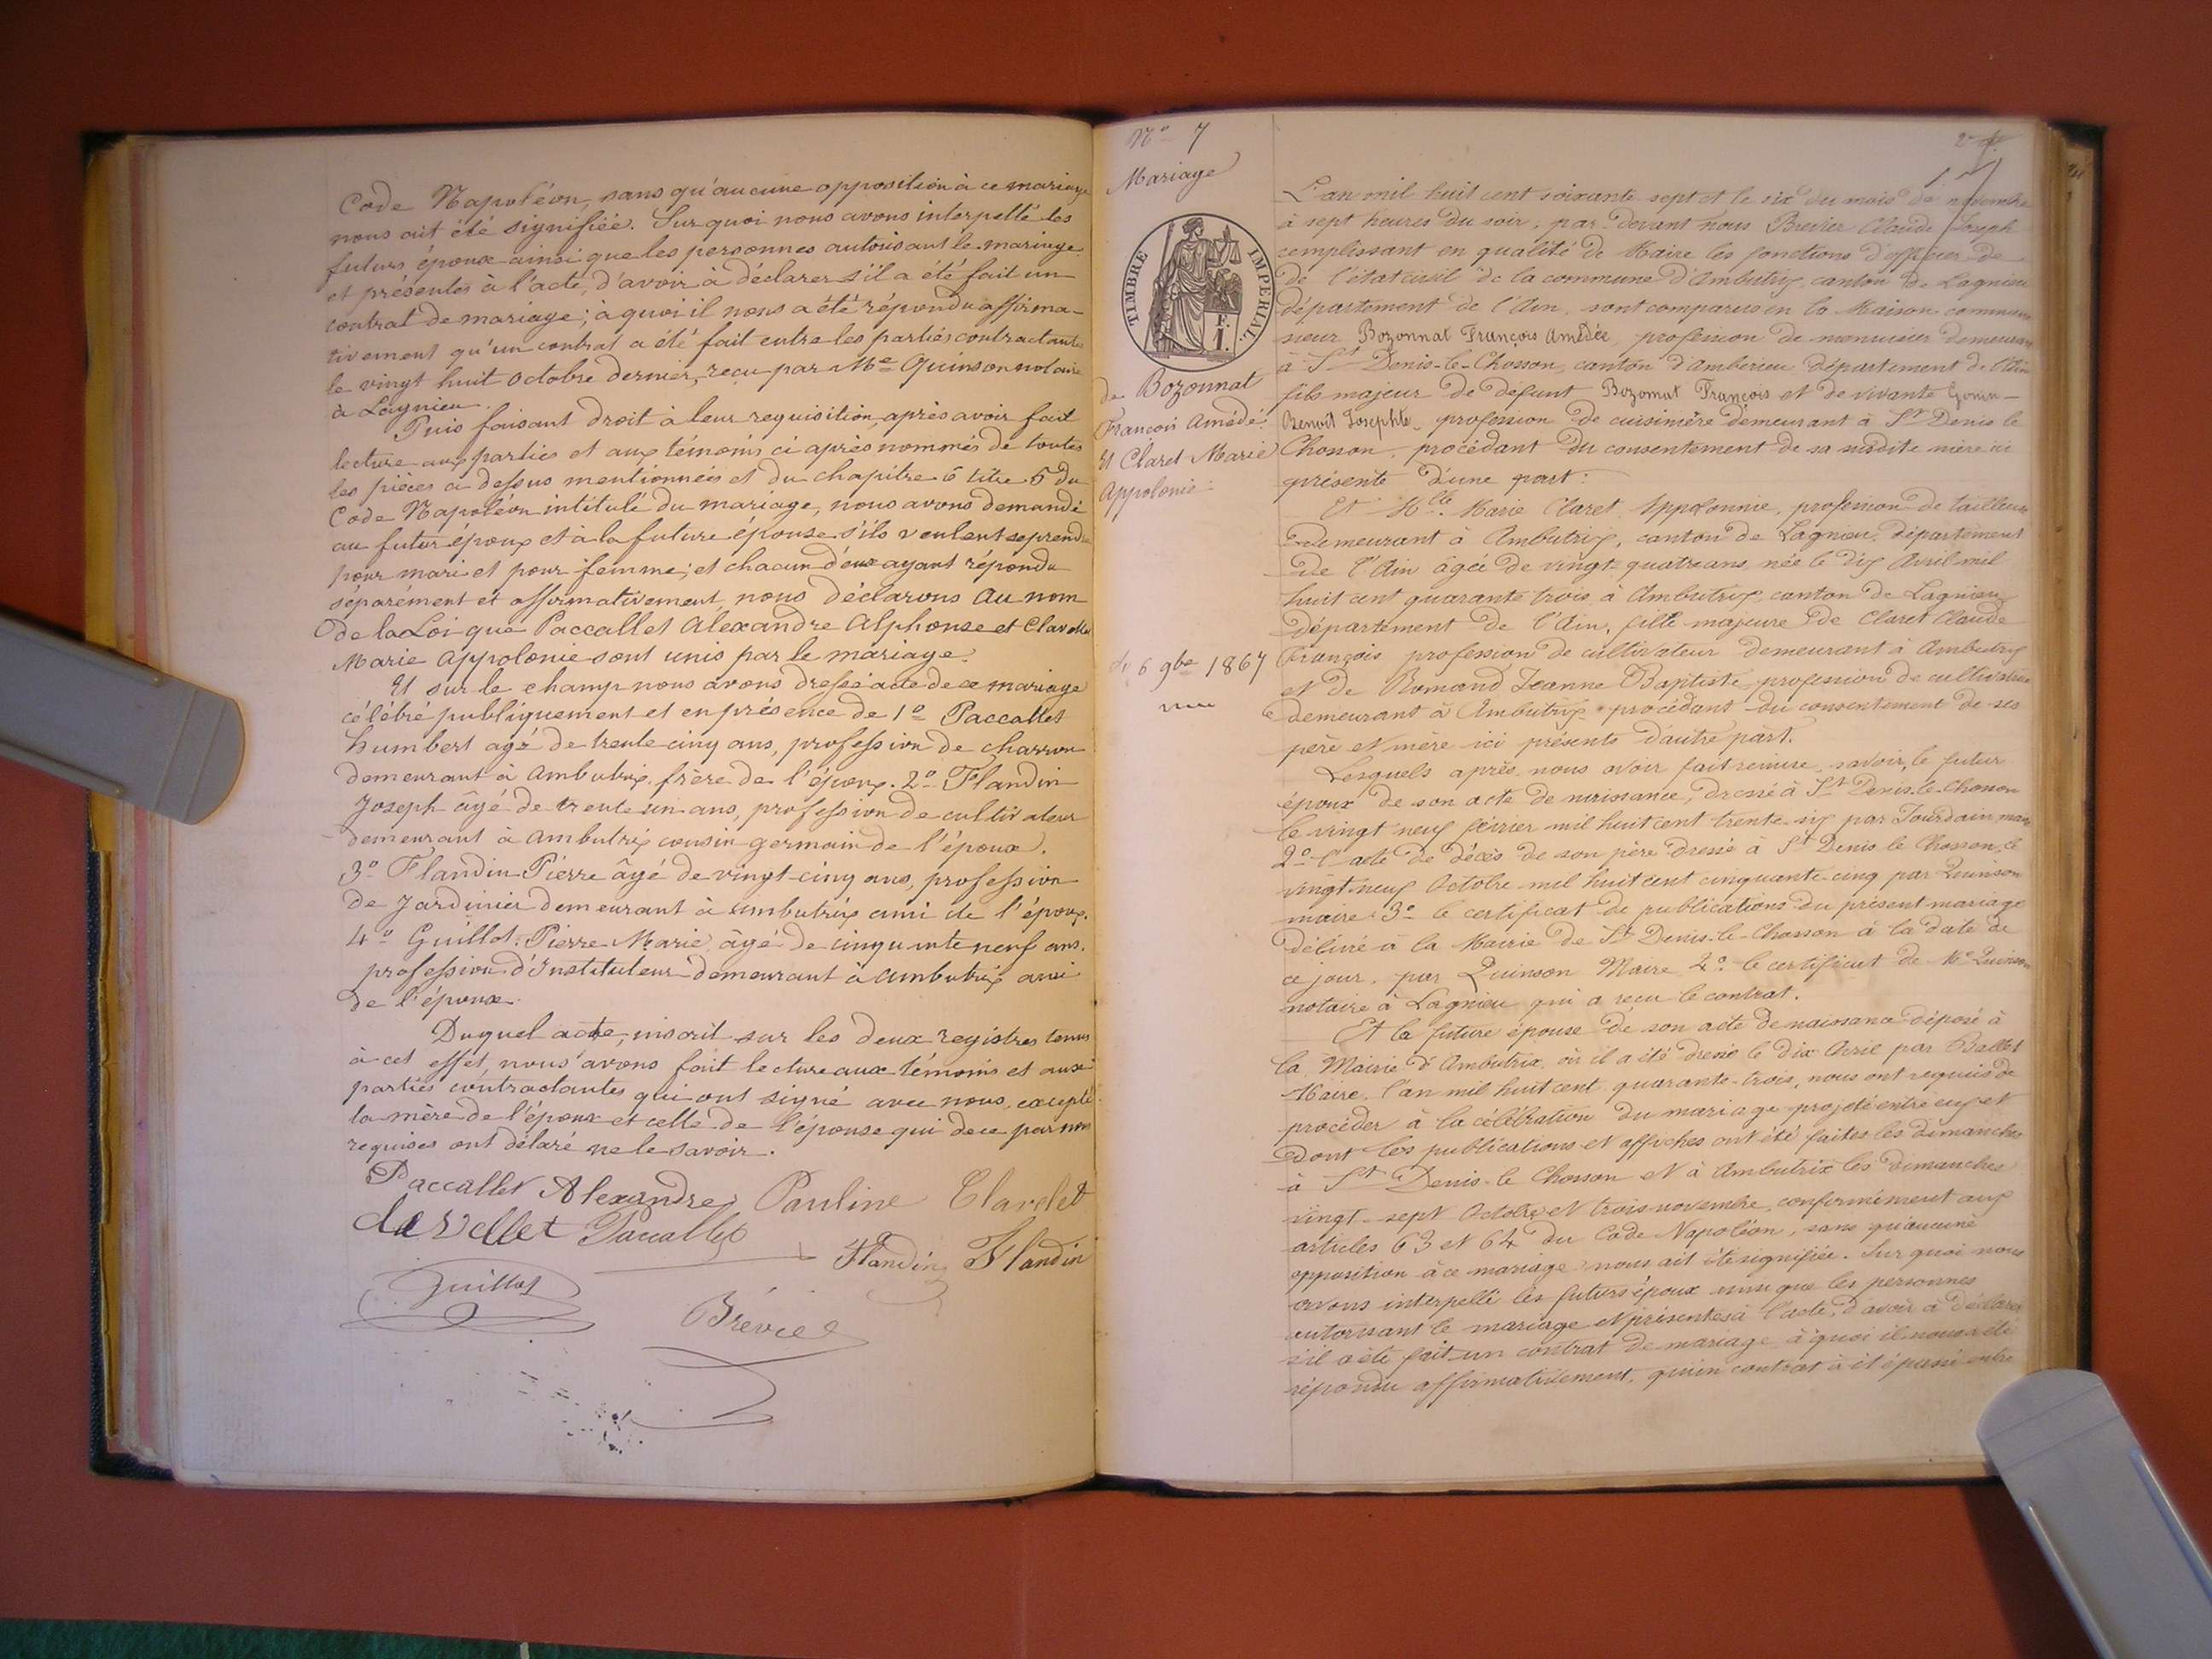 Code Napoléon, sans qu'aucune opposition à ce mariage
nous ait été signifiée. Sur quoi nous avons interpellé les
futurs époux ainsi que les personnes autorisant le mariage
et présentes à l'acte, d'avoir à déclarer s'il a été fait un
contrat de mariage; à quoi il nous a été répondu affirma-
tivement qu'un contrat a été fait entre les parties contractantes
le vingt huit Octobre dernier, reçu par Me Quinson notaire
à Lagnieu.
Puis faisant droit à leur requisition, après avoir fait
lecture aux parties et aux témoins ci après nommés de toutes
les pièces ci dessus mentionnées et du chapitre 6 titre 5 du
Code Napoléon intitulé du mariage, nous avons demandé
au futur époux et à la future épouse s'ils veulent se prendre
pour mari et pour femme; et chacun d'eux ayant répondu
séparément et affirmativement, nous déclarons Au nom
de la Loi que Paccallet Alexandre Alphonse et
Marie Appolonie sont unis par le mariage.
Et sur le champ nous avons dressé acte de ce mariage
célébré publiquement et en présence de 1º Paccallet
humbert agé de trente cinq ans, profession de charron
demeurant à Ambutrix, frère de l'époux. 2º Flandin
Joseph âgé de trente un ans, profession de cultivateur
demeurant à Ambutrix cousin germain de l'époux.
3º Flandin Pierre âgé de vingt-cinq ans, profession
de Jardinier demeurant à ambutrix ami de l'époux.
4º Guillot Pierre Marie, âgé de cinquante neuf ans,
profession d'Instituteur demeurant à ambutrix ami
de l'époux.
Duquel acte, inscrit sur les deux registres tenus
à cet effet, nous avons fait lecture aux témoins et aux
parties contractantes qui ont signé avec nous, excepté
la mère de l'époux et celle de l'épouse qui de ce par nous
requises ont délaré ne le savoir.
Paccallet Alexandre Pauline Clarelet
Paccallet
Flandin Flandin
Guillot
Brévier
Nº 7
Mariage
TIMBRE IMPERIAL
F.
1.
de Bozonnat
François Amédé.
Et Claret Marie
Appolonie.
du 6 9bre 1867
L'an mil huit cent soixante sept et le six du mois de novembre
à sept heures du soir, par devant nous Brevier Claude Joseph
remplissant en qualité de Maire les fonctions d'officier de
de l'état civil de la commune d'Ambutrix, canton de Lagnieu
département de l'Ain, sont comparus en la Maison commune
sieur Bozonnat François Amédée, profession de menuisier demeurant
à St Denis-le-Chosson, canton d'Amberieu département de l'Ain
fils majeur de défunt Bozonnat François et de vivante Gonin-
Benoît Josephte, profession de cuisinière demeurant à St Denis le
Chosson, procédant du consentement de sa susdite mère ici
présente d'une part:
Et Mlle Marie Claret Appolonnie, profession de tailleuse
demeurant à Ambutrix, canton de Lagnieu, département
de l'Ain âgée de vingt-quatre ans, née le dix Avril mil
huit cent quarante trois à Ambutrix, canton de Lagnieu
département de l'Ain, fille majeure de Claret Claude
François profession de cultivateur demeurant à Ambutrix
et de Romand Jeanne Baptiste profession de cultivatrice
demeurant à Ambutrix procédant du consentement de ses
père et mère ici présents d'autre part.
Lesquels après nous avoir fait remise, savoir, le futur
époux de son acte de naissance, dressé à St Denis-le-Chosson
le vingt neuf février mil huit cent trente-six par Jourdain maire
2º l'acte de décès de son père dressé à St Denis le Chosson, le
vingt-neuf Octobre mil huit cent cinquante-cinq par Quinson
maire 3º le certificat de publications du présent mariage
délivré à la Mairie de St Denis-le-Chosson à la date de
ce jour, par Quinson Maire 4º le certificat de Me Quinson
notaire à Lagnieu qui a reçu le contrat.
Et la future épouse de son acte de naissance déposé à
la Mairie d'Ambutrix où il a été dressé le dix Avril par Ballet
Maire, l'an mil huit cent quarante-trois, nous ont requis de
procéder à la célébration du mariage projeté entre eux et
dont les publications et affiches ont été faites les dimanches
à St Denis-le Chosson et à Ambutrix les dimanches
vingt-sept Octobre et trois novembre, conformément aux
articles 63 et 64 du Code Napoléon, sans qu'aucune
opposition à ce mariage nous ait été signifiée. Sur quoi nous
avons interpellé les futurs époux ainsi que les personnes
autorisant le mariage et présentes à l'acte, d'avoir à déclarer
s'il a été fait un contrat de mariage à quoi il nous a été
répondu affirmativement, qu'un contrat a été passé entre